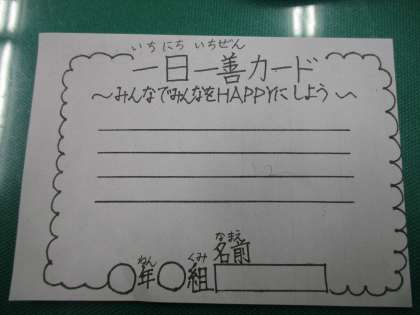 いちにち いちぜん
一日一善カード
～みんなでみんなをHAPPYにしよう～
なまえ
ねん くみ 名前
○年○組